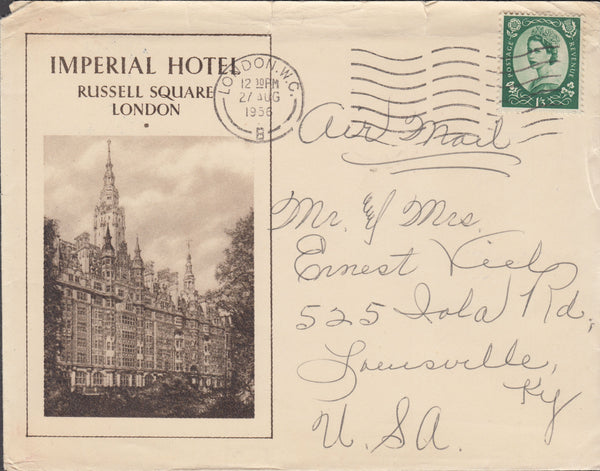 IMPERIAL HOTEL
RUSSELL SQUARE
LONDON
LONDON. W.C.
12 30 PM
27 AUG
1956
B
POSTAGE
REVENUE
1/3
Air Mail
Mr. & Mrs.
Ernest Viel
525 Iola Rd.
Louisville,
Ky
U.S.A.